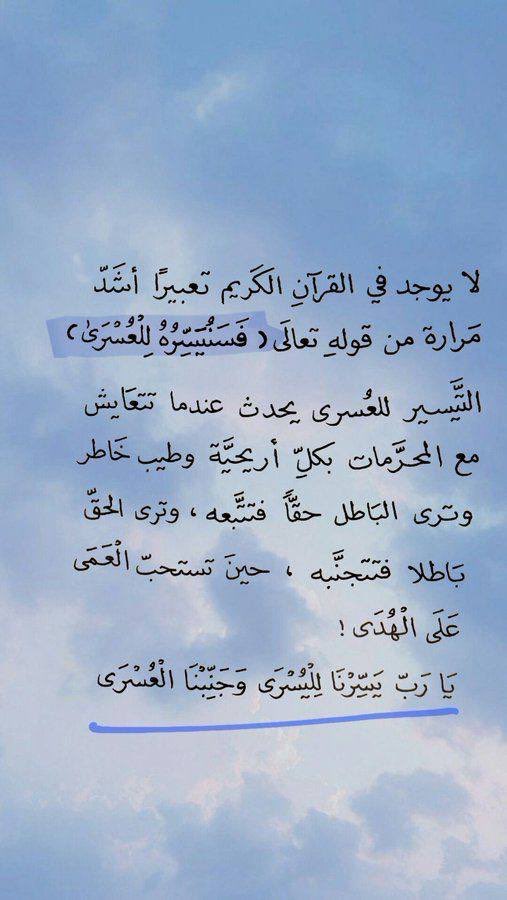 لا يوجد في القرآنِ الكَريم تعبيرًا أشَدّ
مَرارة من قولهِ تعالَى ( فَسَنُيَسِّرُهُ لِلْعُسْرَىٰ )
التَّيْسير للعُسرى يحدث عندما تتعَايش
مع المحرَّمات بكلِّ أريحيَّة وطيب خَاطر
وترى البَاطل حقًّا فتتَّبعه ، وترى الحقّ
بَاطلا فتتجنَّبه ، حينَ تستحبّ الْعَمَى
عَلَى الْهُدَى !
يَا رَبّ يَسِّرْنَا لِلْيُسْرَى وَجَنِّبْنَا الْعُسْرَى